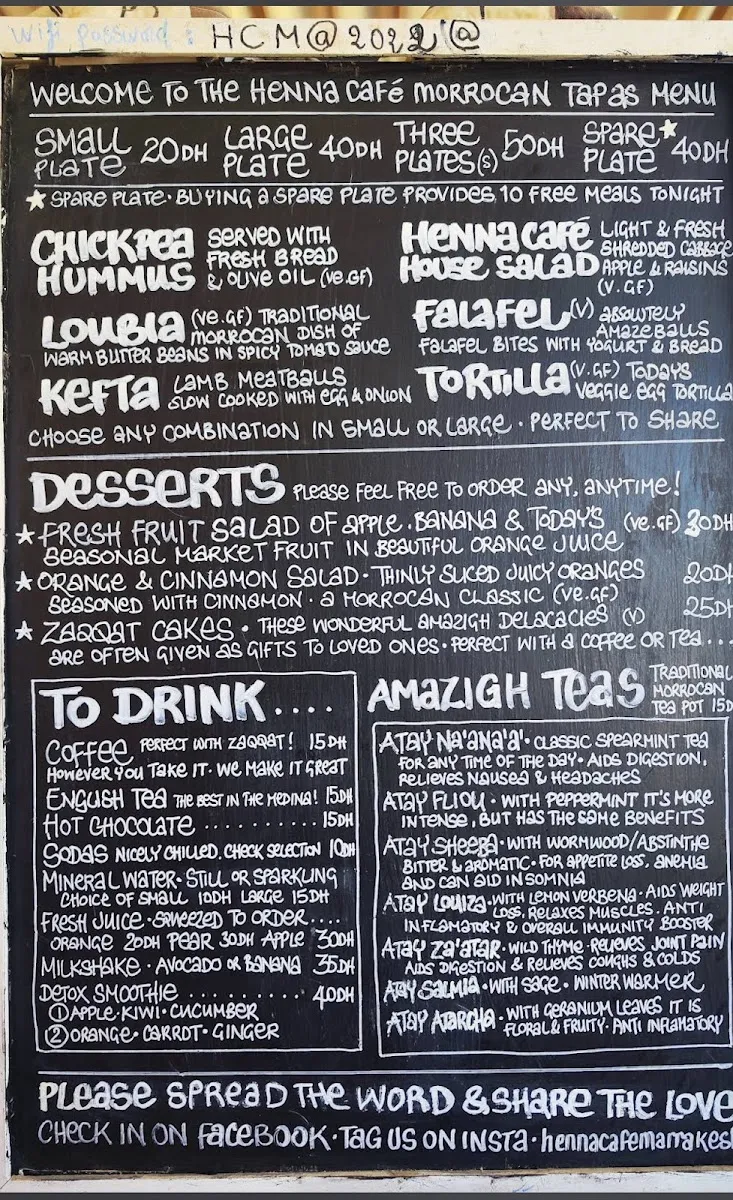 Wifi Password : HCM@2022@
WELCOME TO THE HENNA CAFé MORROCAN TAPAS MENU
SMALL PLATE 20DH LARGE PLATE 40DH THREE PLATES(S) 50DH SPARE★ PLATE 40DH
★ SPARE PLATE · BUYING A SPARE PLATE PROVIDES 10 FREE MEALS TONIGHT
CHICKPEA HUMMUS SERVED WITH
FRESH BREAD
& OLIVE OIL (Ve.GF)
HENNA CAFé HOUSE SALAD LIGHT & FRESH
SHREDDED CABBAGE
APPLE & RAISINS
(V.GF)
LOUBIA (Ve.GF) TRADITIONAL
MORROCAN DISH OF
WARM BUTTER BEANS IN SPICY TOMATO SAUCE
FALAFEL (V) ABSOLUTELY
AMAZEBALLS
FALAFEL BITES WITH YOGURT & BREAD
KEFTA LAMB MEATBALLS
SLOW COOKED WITH EGG & ONION
TORTILLA (V.GF) TODAYS
VEGGIE EGG TORTILLA
CHOOSE ANY COMBINATION IN SMALL OR LARGE · PERFECT TO SHARE
DESSERTS PLEASE FEEL FREE TO ORDER ANY, ANYTIME!
★ FRESH FRUIT SALAD OF APPLE . BANANA & TODAYS (Ve.GF) 30DH
SEASONAL MARKET FRUIT IN BEAUTIFUL ORANGE JUICE
★ ORANGE & CINNAMON SALAD · THINLY SLICED JUICY ORANGES 20DH
SEASONED WITH CINNAMON · A MORROCAN CLASSIC (Ve.GF)
★ ZAQQAT CAKES · THESE WONDERFUL AMAZIGH DELACACIES (V) 25DH
ARE OFTEN GIVEN AS GIFTS TO LOVED ONES · PERFECT WITH A COFFEE OR TEA...
TO DRINK....
COFFEE PERFECT WITH ZAQQAT! 15DH
HOWEVER YOU TAKE IT · WE MAKE IT GREAT
ENGLISH TEA THE BEST IN THE MEDINA! 15DH
HOT CHOCOLATE .......... 15DH
SODAS NICELY CHILLED. CHECK SELECTION 10DH
MINERAL WATER · STILL OR SPARKLING
CHOICE OF SMALL 10DH LARGE 15DH
FRESH JUICE · SQWEEZED TO ORDER....
ORANGE 20DH PEAR 30DH APPLE 30DH
MILKSHAKE · AVOCADO OR BANANA 35DH
DETOX SMOOTHIE .......... 40DH
① APPLE · KIWI · CUCUMBER
② ORANGE · CARROT · GINGER
AMAZIGH TEAS TRADITIONAL
MORROCAN
TEA POT 15D
ATAY NA'ANA'A' · CLASSIC SPEARMINT TEA
FOR ANY TIME OF THE DAY · AIDS DIGESTION,
RELIEVES NAUSEA & HEADACHES
ATAY FLIOU · WITH PEPPERMINT IT'S MORE
INTENSE, BUT HAS THE SAME BENEFITS
ATAY SHEEBA · WITH WORMWOOD/ABSTINTHE
BITTER & AROMATIC · FOR APPETITE LOSS, ANEMIA
AND CAN AID INSOMNIA
ATAY LOUIZA · WITH LEMON VERBENA · AIDS WEIGHT
LOSS, RELAXES MUSCLES. ANTI
INFLAMATORY & OVERALL IMMUNITY BOOSTER
ATAY ZA'ATAR · WILD THYME · RELIEVES JOINT PAIN
AIDS DIGESTION & RELIEVES COUGHS & COLDS
ATAY SALMIA · WITH SAGE · WINTER WARMER
ATAY ATARCHA · WITH GERANIUM LEAVES IT IS
FLORAL & FRUITY · ANTI INFLAMATORY
PLEASE SPREAD THE WORD & SHARE THE LOVE
CHECK IN ON FACEBOOK · TAG US ON INSTA · hennacafemarrakes